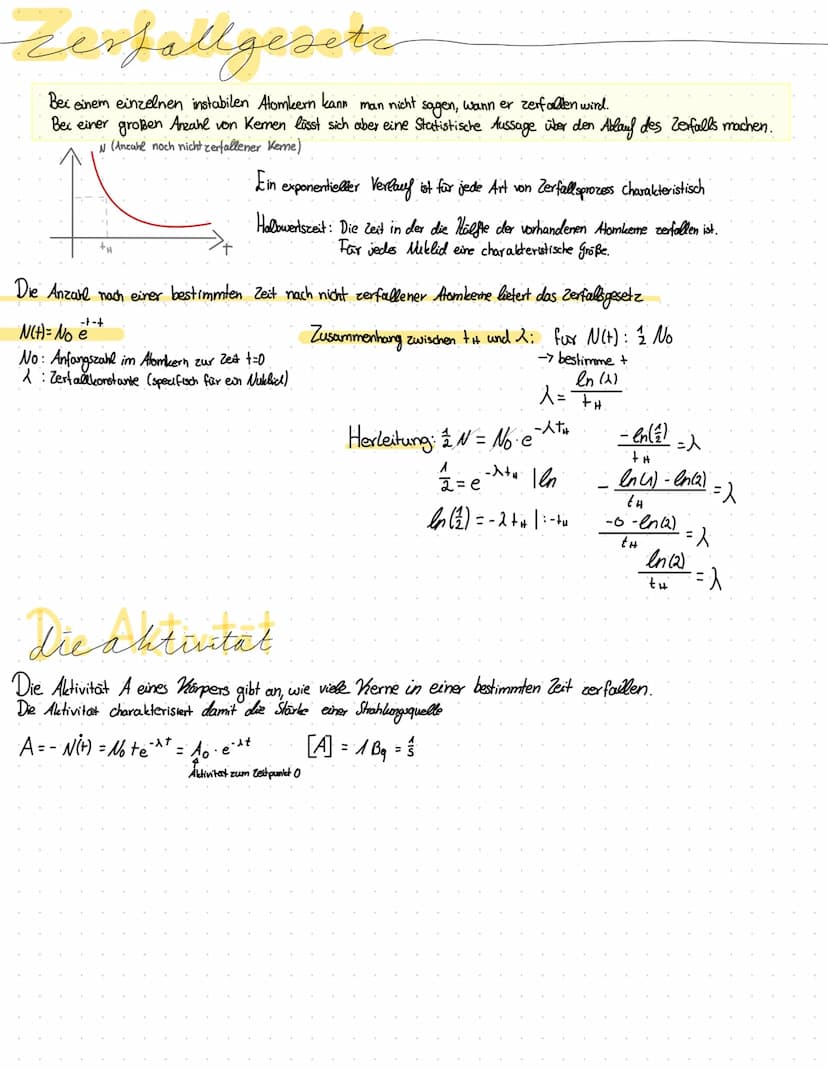 Zerfallgesetz
Bei einem einzelnen instabilen Atomkern kann man nicht sagen, wann er zerfallen wird.
Bei einer großen Anzahl von Kernen lässt sich aber eine Statistische Aussage über den Ablauf des Zerfalls machen.
N (Anzahl noch nicht zerfallener Kerne)
Ein exponentieller Verlauf ist für jede Art von Zerfallsprozess charakteristisch
Halbwertszeit: Die Zeit in der die Hälfte der vorhandenen Atomkerne zerfallen ist.
Für jedes Nuklid eine charakteristische Größe.
t_H
t
Die Anzahl nach einer bestimmten Zeit noch nicht zerfallener Atomkerne liefert das Zerfallsgesetz
N(t)= N₀ e^-t-t
Zusammenhang zwischen t_H und λ: für N(t): ½ N₀
N₀: Anfangszahl im Atomkern zur Zeit t=0
→ bestimme t
λ: Zerfallkonstante (spezifisch für ein Nuklid)
λ = ln(λ)/t_H
Herleitung: ½ N = N₀ · e^-λt_H
½ = e^-λt_H | ln
ln(½) = -λt_H | :-t_H
-ln(½)/t_H = λ
- ln(1) - ln(2)/t_H = λ
-0 - ln(2)/t_H = λ
ln(2)/t_H = λ
Die Aktivität
die aktivität
Die Aktivität A eines Körpers gibt an, wie viele Kerne in einer bestimmten Zeit zerfallen.
Die Aktivität charakterisiert damit die Stärke einer Strahlungsquelle
A = - Ṅ(t) = N₀ te^-λt = A₀ · e^-λt [A] = 1 Bq = 1/s
Aktivität zum Zeitpunkt 0